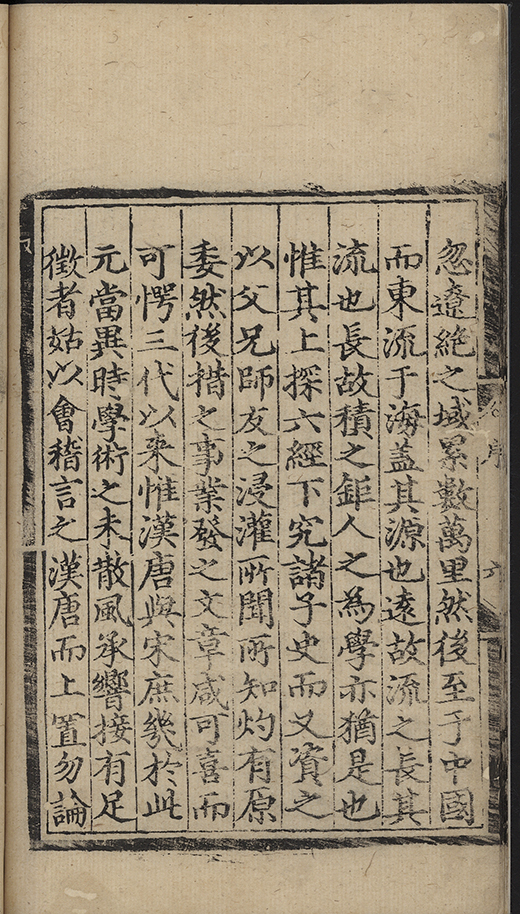 忽遼絶之域累數萬里然後至于中國
而東流于海盖其源也逺故流之長其
流也長故積之鉅人之為學亦猶是也
惟其上探六經下究諸子史而又資之
以父兄師友之浸灌所聞所知灼有原
委然後措之事業發之文章咸可喜而
可愕三代以来惟漢唐與宋庶幾於此
元當異時學術之未散風承響接有足
徵者姑以會稽言之漢唐而上置勿論